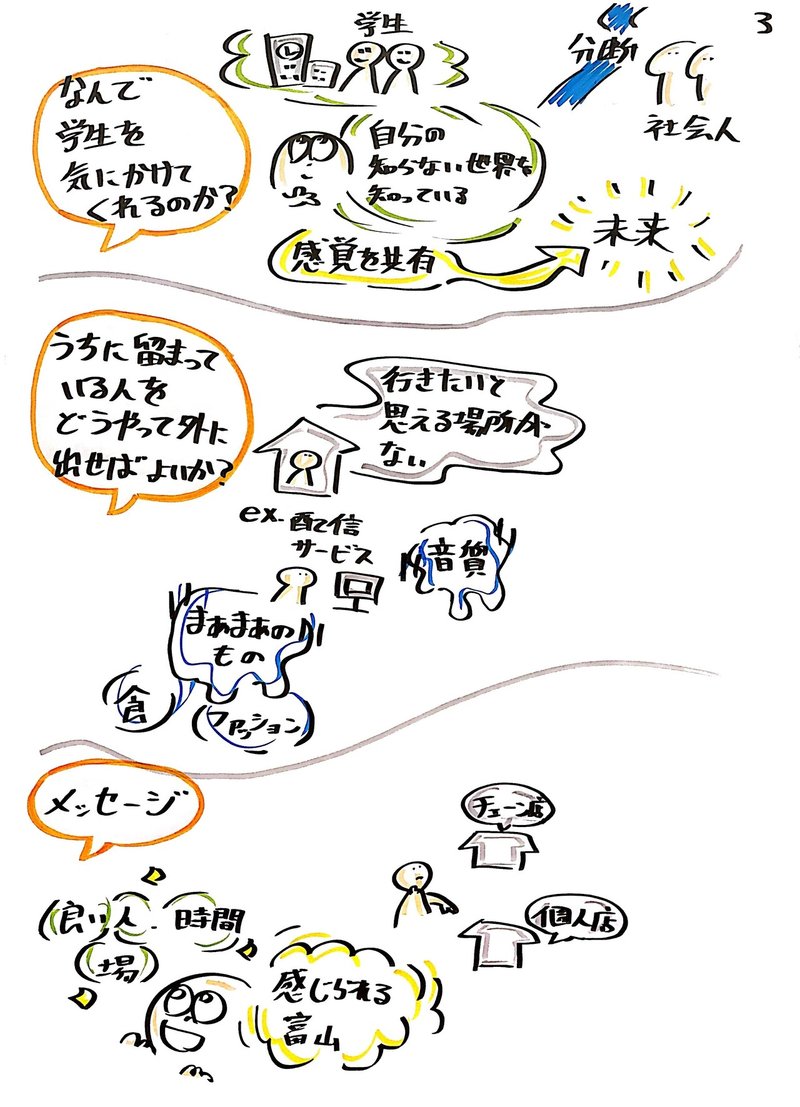 3
学生
分断
社会人
なんで
学生を
気にかけて
くれるのか?
自分の
知らない世界を
知っている
感覚を共有
未来
うちに留まって
いる人を
どうやって外に
出せばよいか?
行きたいと
思える場所が
ない
ex.配信
サービス
音質
まあまあの
もの
食
ファッション
メッセージ
チェーン店
個人店
良い人・時間
場
感じられる
富山